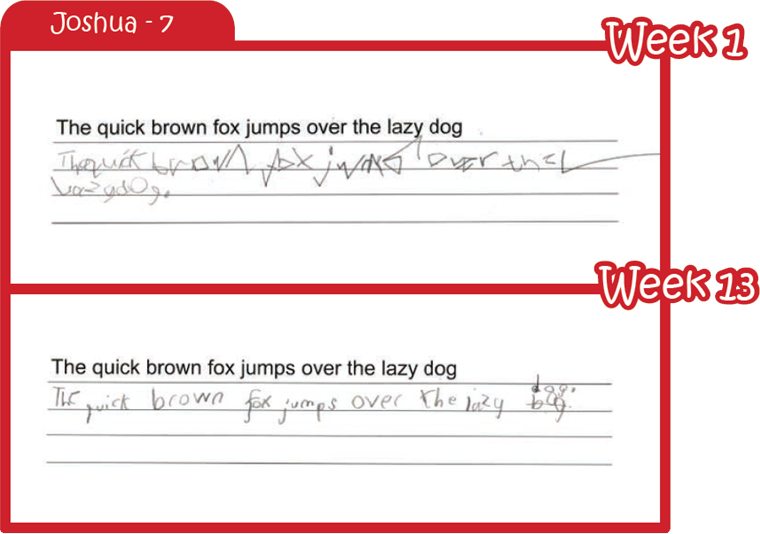 Joshua - 7
Week 1
The quick brown fox jumps over the lazy dog
Thequick brown fox jumps over the
lazy dog.
Week 13
The quick brown fox jumps over the lazy dog
The quick brown fox jumps over the lazy dog.